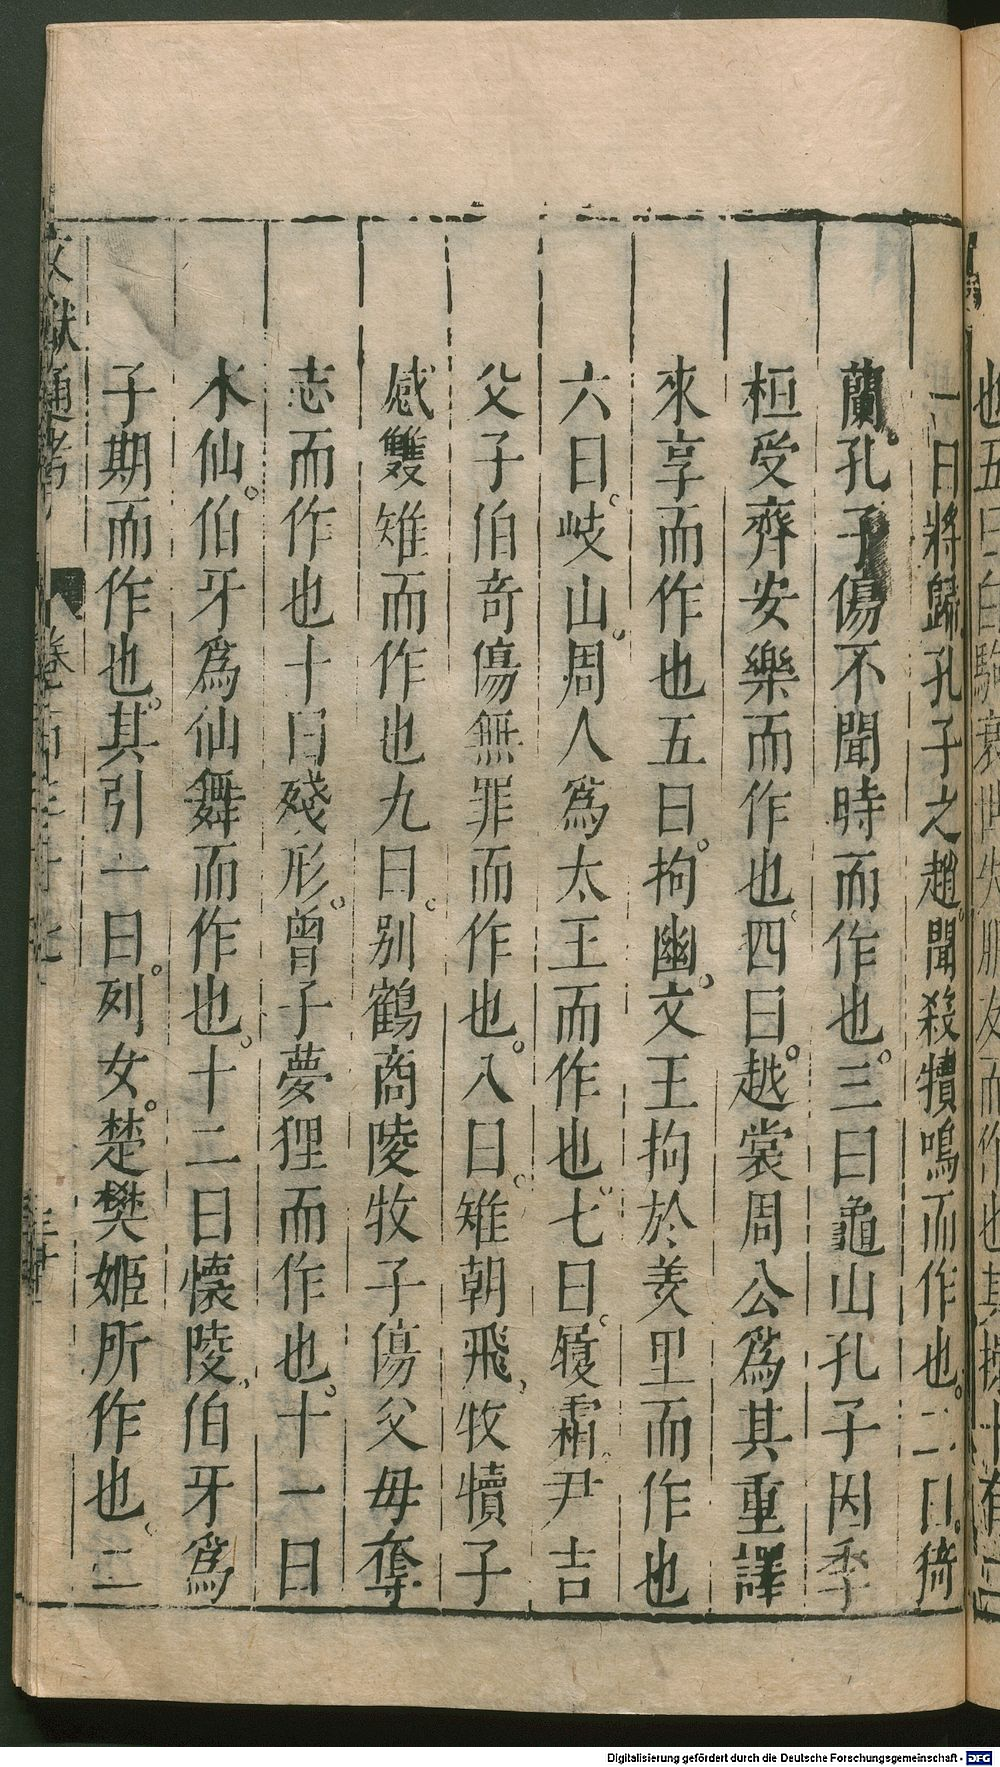 也五曰白駒衰世失朋友而作也其操十有二
一曰將歸孔子之趙聞殺犢鳴而作也二曰猗
蘭孔子傷不聞時而作也三曰龜山孔子因季
桓受齊安樂而作也四曰越裳周公爲其重譯
來享而作也五曰拘幽文王拘於羑里而作也
六曰岐山周人爲太王而作也七曰履霜尹吉
父子伯奇傷無罪而作也八曰雉朝飛牧犢子
感雙雉而作也九曰別鶴商陵牧子傷父母奪
志而作也十曰殘形曾子夢狸而作也十一曰
水仙伯牙爲仙舞而作也十二曰懷陵伯牙爲
子期而作也其引一曰列女楚樊姬所作也二
文獻通考 卷一百三十七
Digitalisierung gefördert durch die Deutsche Forschungsgemeinschaft - DFG